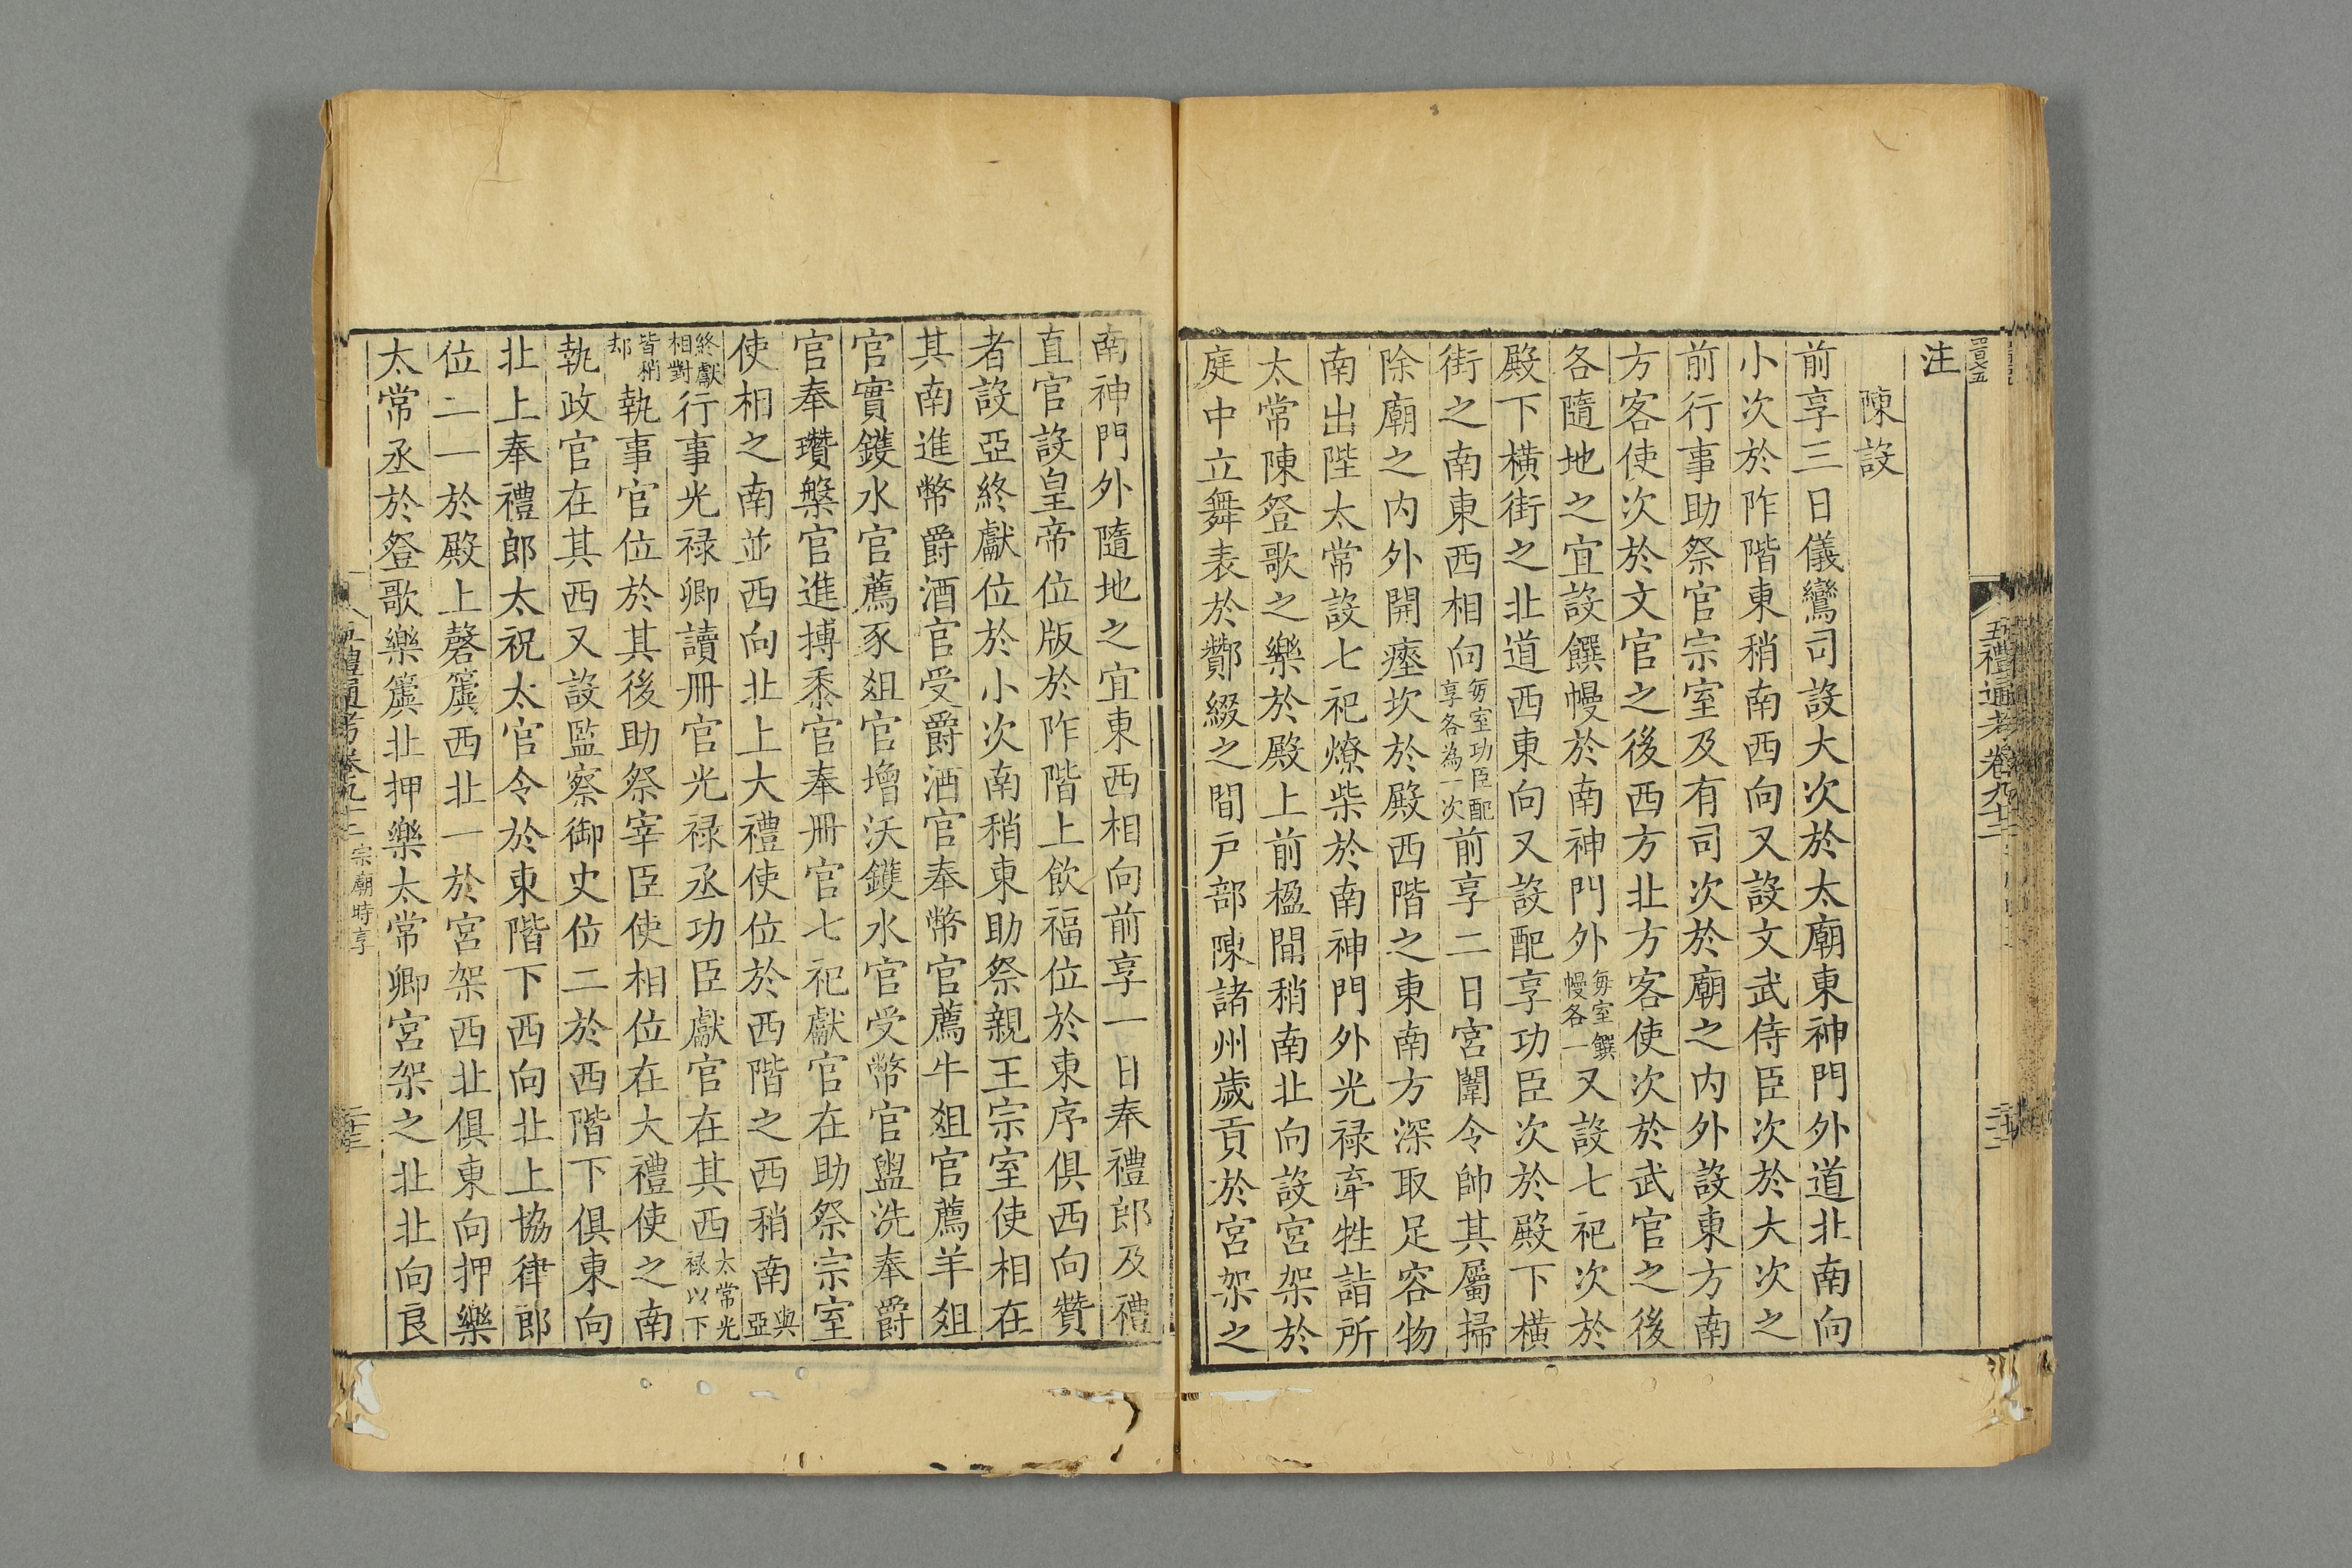 五禮通考卷九十二
注
陳設
前享三日儀鸞司設大次於太廟東神門外道北南向
小次於阼階東稍南西向又設文武侍臣次於大次之
前行事助祭官宗室及有司次於廟之内外設東方南
方客使次於文官之後西方北方客使次於武官之後
各隨地之宜設饌幔於南神門外每室饌幔各一又設七祀次於
殿下橫街之北道西東向又設配享功臣次於殿下橫
街之南東西相向每室功臣配享各為一次前享二日宮闈令帥其屬掃
除廟之内外開瘞坎於殿西階之東南方深取足容物
南出陛太常設七祀燎柴於南神門外光禄牽牲詣所
太常陳登歌之樂於殿上前楹間稍南北向設宮架於
庭中立舞表於酇綴之間戸部陳諸州歲貢於宮架之
南神門外隨地之宜東西相向前享一日奉禮郎及禮
直官設皇帝位版於阼階上飲福位於東序俱西向贊
者設亞終獻位於小次南稍東助祭親王宗室使相在
其南進幣爵酒官受爵酒官奉幣官薦牛俎官薦羊俎
官實鑊水官薦豕俎官增沃鑊水官受幣官盥洗奉爵
官奉瓚槃官進摶黍官奉冊官七祀獻官在助祭宗室
使相之南並西向北上大禮使位於西階之西稍南與亞
終獻相對行事光禄卿讀冊官光禄丞功臣獻官在其西太常光禄以下
皆稍却執事官位於其後助祭宰臣使相位在大禮使之南
執政官在其西又設監察御史位二於西階下俱東向
北上奉禮郎太祝太官令於東階下西向北上協律郎
位二一於殿上磬簴西北一於宮架西北俱東向押樂
太常丞於登歌樂簴北押樂太常卿宮架之北北向良
五禮通考卷九十二 宗廟時享 二十三